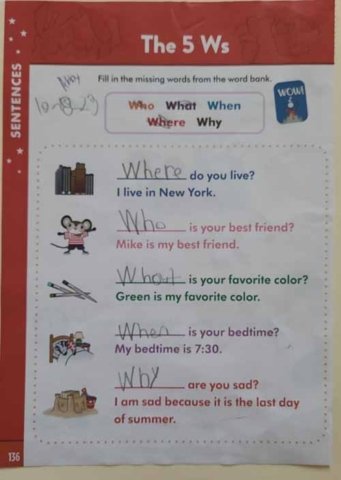 The 5 Ws
SENTENCES
Fill in the missing words from the word bank.
10-18-23
WOW!
Who What When
Where Why
Where do you live?
I live in New York.
Who is your best friend?
Mike is my best friend.
What is your favorite color?
Green is my favorite color.
When is your bedtime?
My bedtime is 7:30.
Why are you sad?
I am sad because it is the last day
of summer.
136